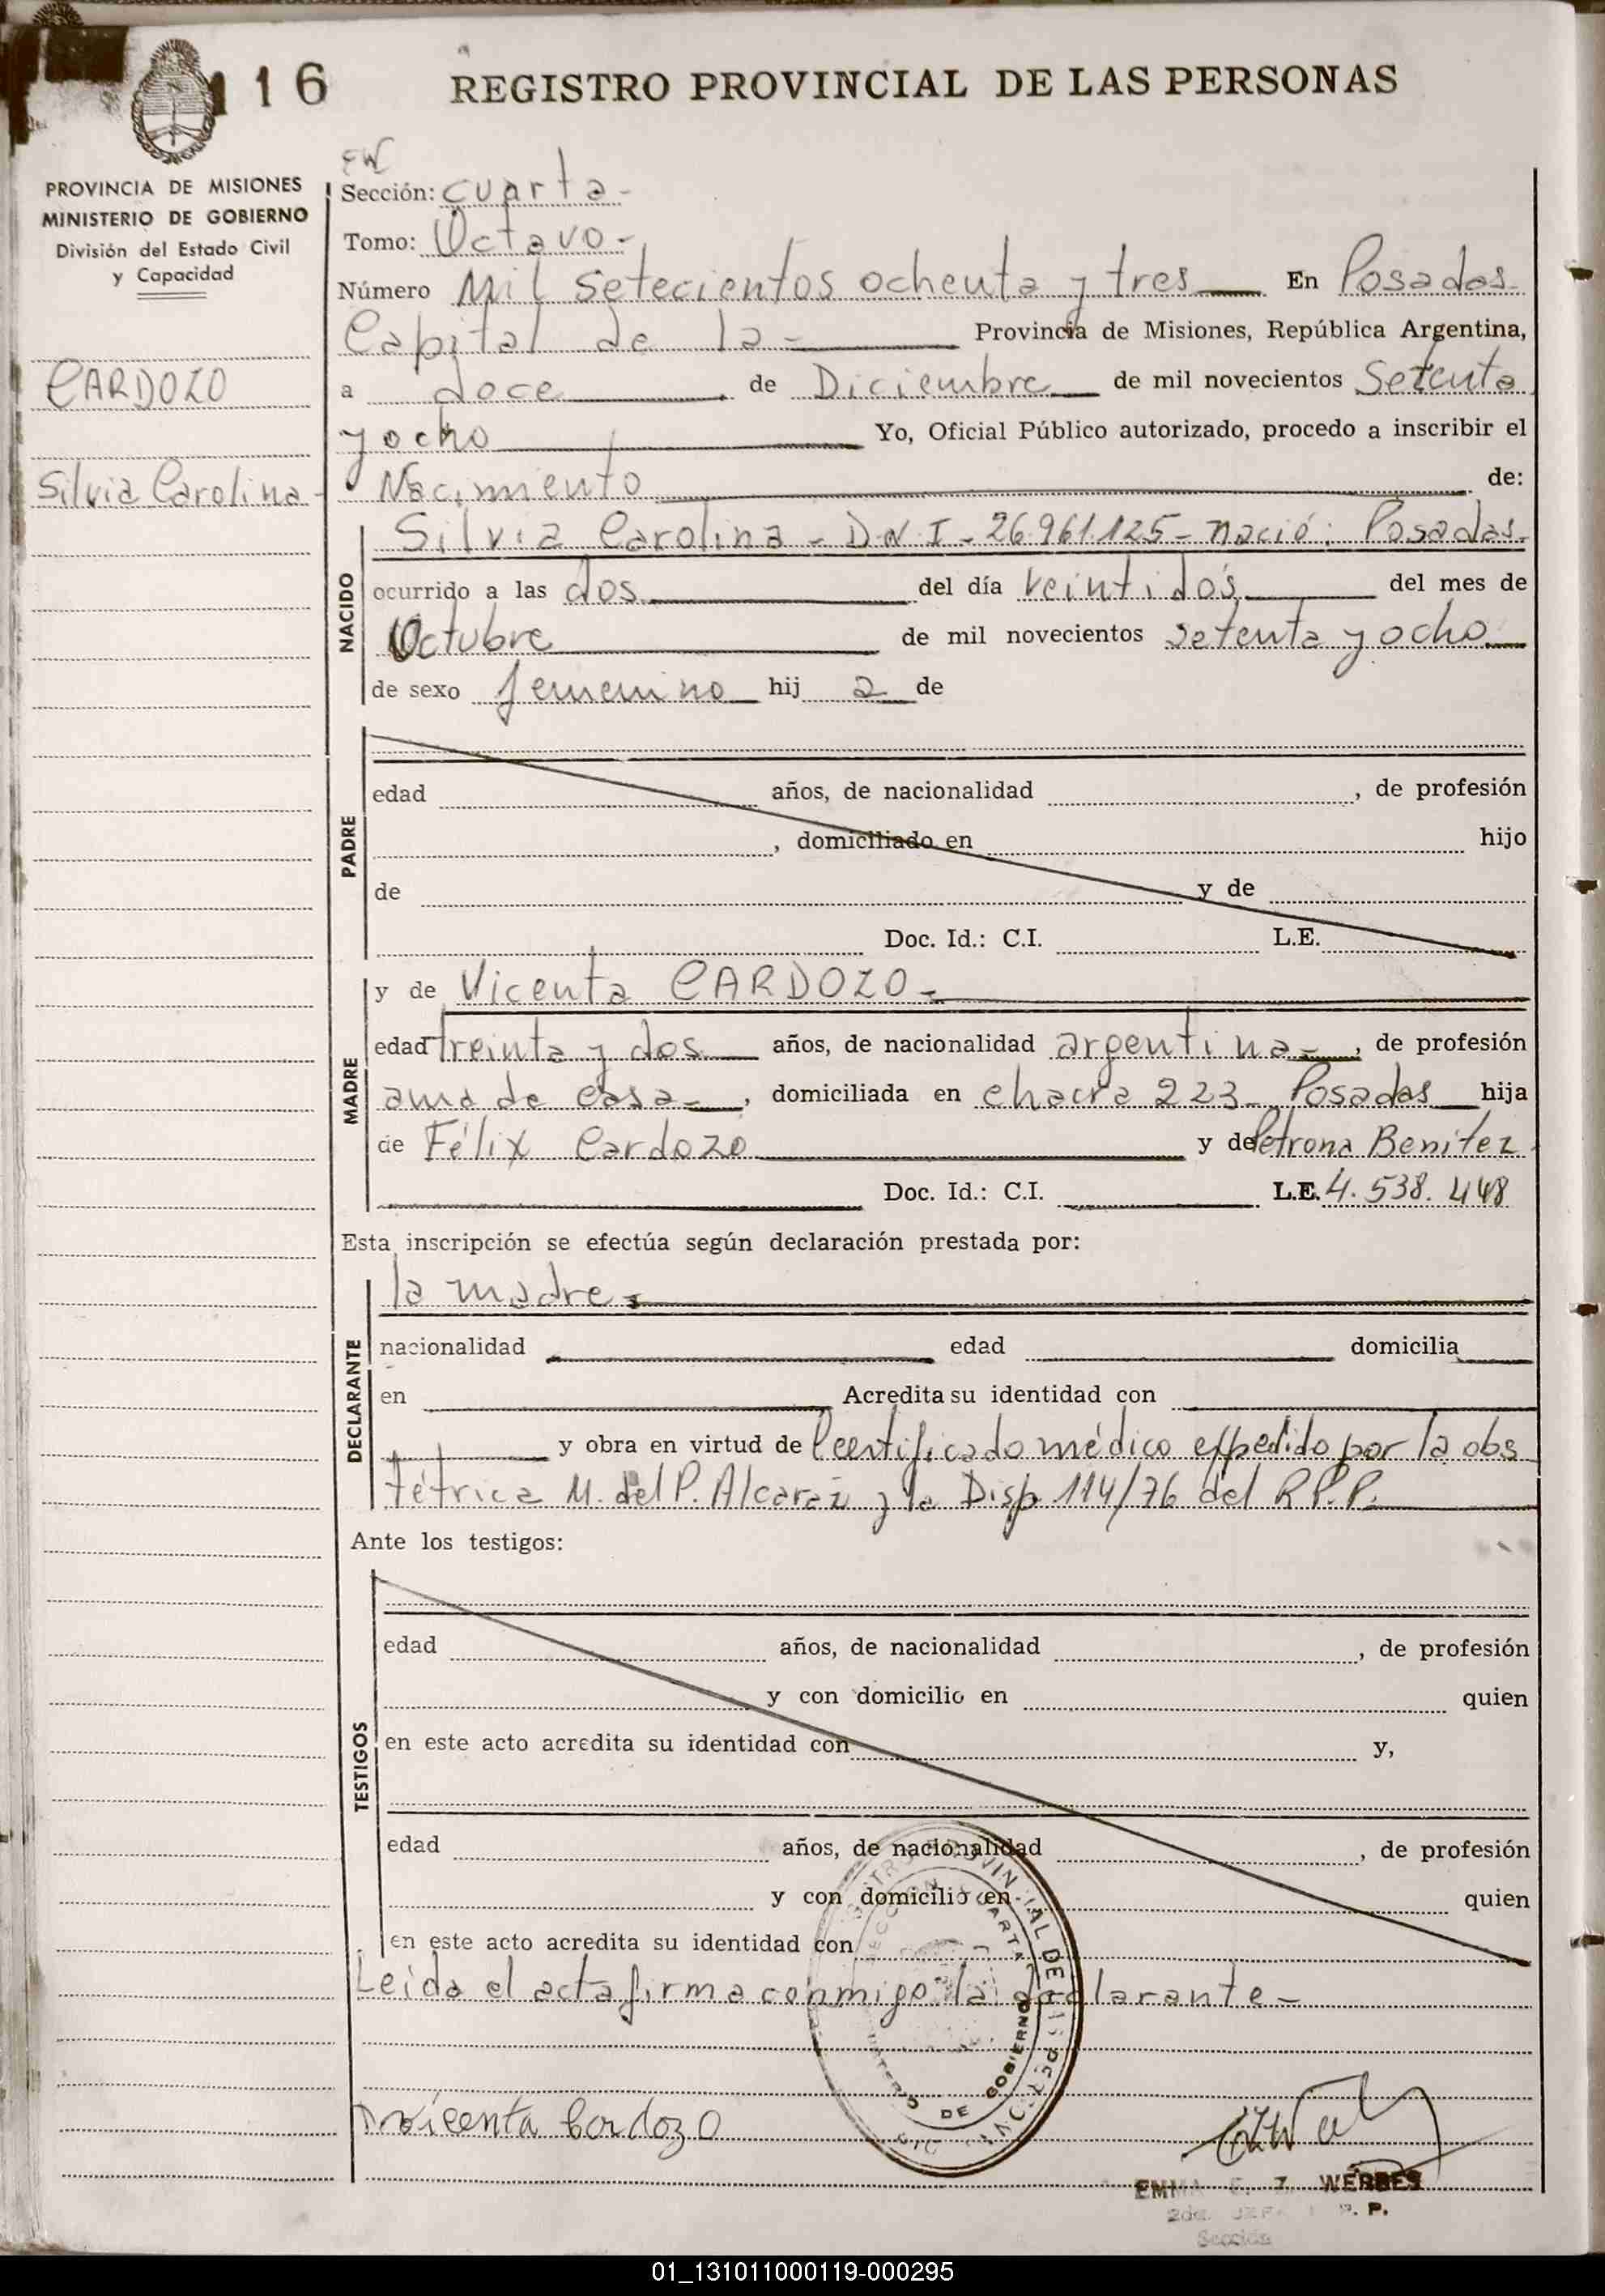 116
REGISTRO PROVINCIAL DE LAS PERSONAS
PROVINCIA DE MISIONES
MINISTERIO DE GOBIERNO
División del Estado Civil
y Capacidad
CARDOZO
Silvia Carolina -
EW
Sección: Cuarta -
Tomo: Octavo -
Número Mil Setecientos ochenta y tres En Posadas
Capital de la - Provincia de Misiones, República Argentina,
a doce de Diciembre de mil novecientos Setenta
y ocho Yo, Oficial Público autorizado, procedo a inscribir el
Nacimiento de:
NACIDO
Silvia Carolina - D.N.I - 26.961.125 - nació: Posadas -
ocurrido a las dos del día veintidós del mes de
Octubre de mil novecientos setenta y ocho
de sexo femenino hij a de
PADRE
edad años, de nacionalidad , de profesión
, domiciliado en hijo
de y de
Doc. Id.: C.I. L.E.
MADRE
y de Vicenta CARDOZO -
edad treinta y dos años, de nacionalidad argentina - , de profesión
ama de casa - , domiciliada en chacra 223 - Posadas hija
de Félix Cardozo y de Petrona Benitez
Doc. Id.: C.I. L.E. 4.538.448
Esta inscripción se efectúa según declaración prestada por:
DECLARANTE
la madre -
nacionalidad edad domicilia
en Acredita su identidad con
y obra en virtud de Certificado médico expedido por la obs
tétrica M. del P. Alcaraz y la Disp. 114/76 del R.P.P.
Ante los testigos:
TESTIGOS
edad años, de nacionalidad , de profesión
y con domicilio en quien
en este acto acredita su identidad con y,
edad años, de nacionalidad , de profesión
y con domicilio en quien
en este acto acredita su identidad con
Leida el acta firma conmigo la declarante -
Vicenta Cardozo
EMMA E. Z. WERBES
2da. JEF. P. P.
Sección
01_131011000119-000295